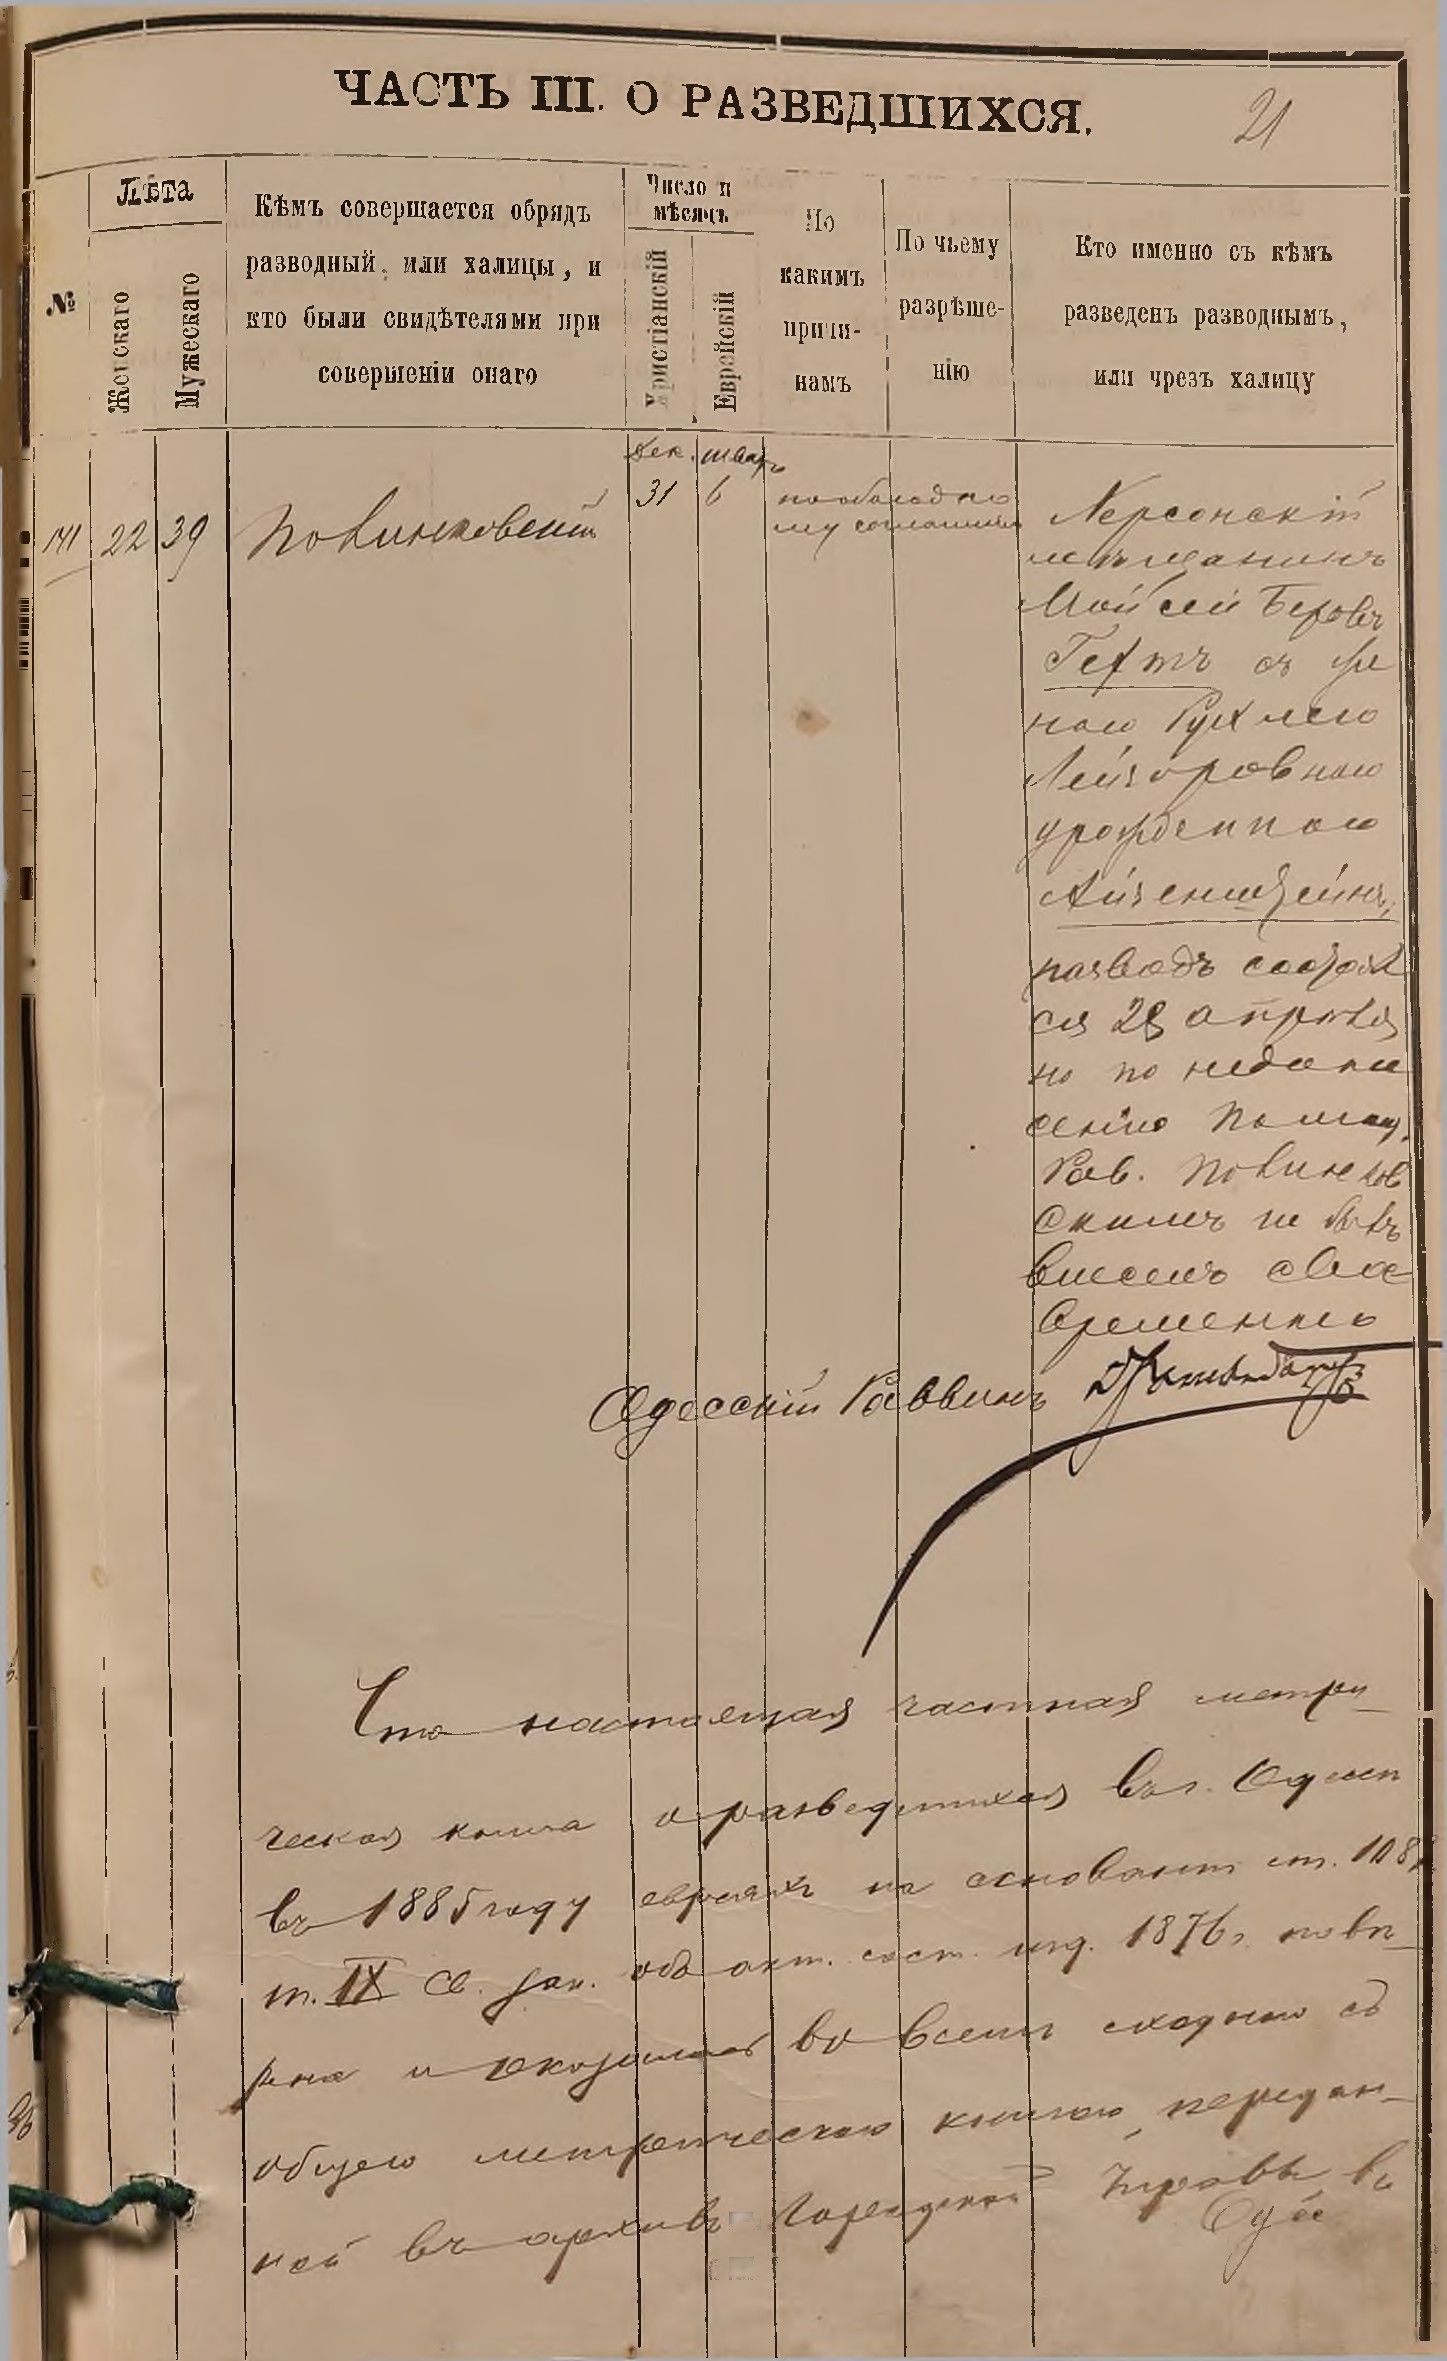 ЧАСТЬ III. О РАЗВЕДШИХСЯ.
21
№
Лѣта
Женскаго
Мужескаго
Кѣмъ совершается обрядъ
разводный или халицы, и
кто были свидѣтелями при
совершеніи онаго
Число и
мѣсяцъ
Христіанскій
Еврейскій
По
какимъ
причи-
намъ
По чьему
разрѣше-
нію
Кто именно съ кѣмъ
разведенъ разводнымъ,
или чрезъ халицу
Дек.
31
6
по обоюдно
му согланію
141
22
39
Повинковскій
Херсонскій
мѣщанинъ
Мойсей Беровъ
Гехтъ съ же
ною Рухлею
Лейзоровною
урожденною
Айзенштейнъ,
разводъ состоял
ся 28 апрѣля
но по недоне
сенію Помощ.
Рав. Повинков
скимъ не былъ
внесенъ свое
временно
Одесскій Раввинъ
Что настоящая частная метри-
ческая книга о разведшихся въ г. Одессѣ
въ 1885 году евреяхъ на основаніи ст. 108
т. IX Св. Зак. объ акт. сост. изд. 1876 г. повѣ-
рена и оказалась во всемъ сходною съ
общею метрическою книгою, передан-
ной въ архивъ Городской Управы въ
Одес